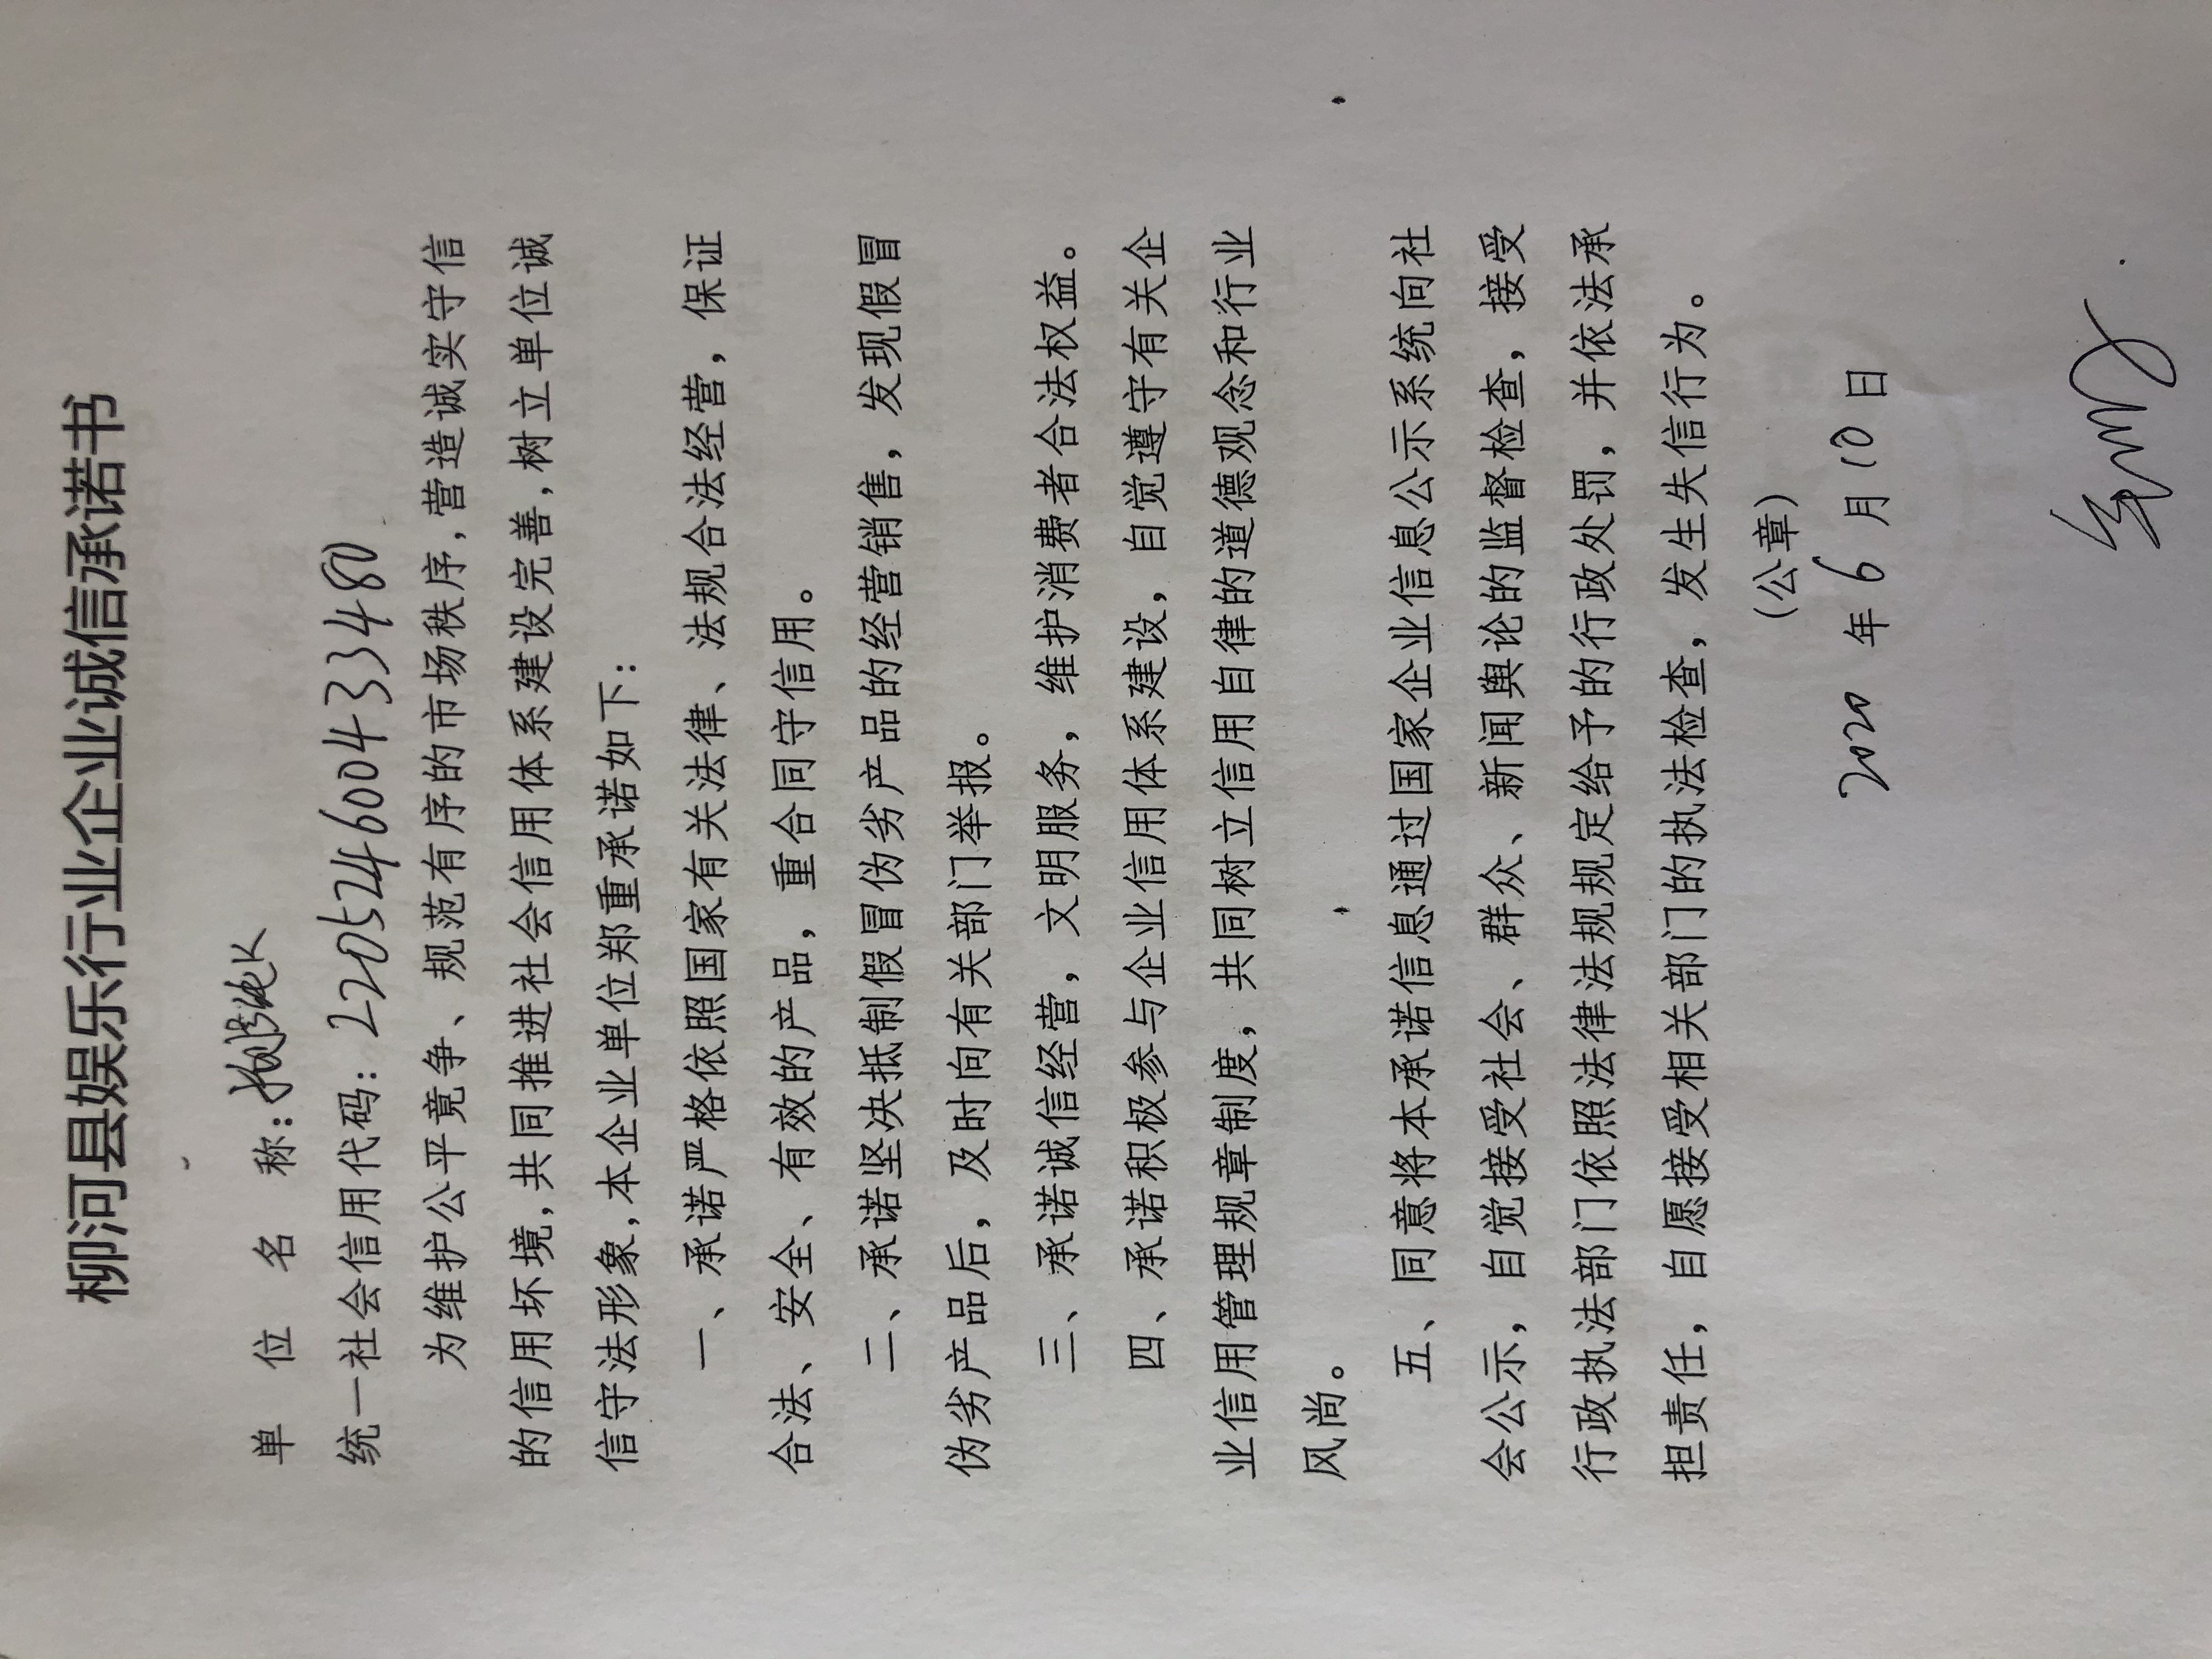 柳河县娱乐行业企业诚信承诺书
单 位 名 称:
统一社会信用代码: 220524600433480
为维护公平竟争、规范有序的市场秩序,营造诚实守信
的信用坏境,共同推进社会信用体系建设完善,树立单位诚
信守法形象,本企业单位郑重承诺如下:
一、承诺严格依照国家有关法律、法规合法经营，保证
合法、安全、有效的产品，重合同守信用。
二、承诺坚决抵制假冒伪劣产品的经营销售，发现假冒
伪劣产品后，及时向有关部门举报。
三、承诺诚信经营，文明服务，维护消费者合法权益。
四、承诺积极参与企业信用体系建设，自觉遵守有关企
业信用管理规章制度，共同树立信用自律的道德观念和行业
风尚。
五、同意将本承诺信息通过国家企业信息公示系统向社
会公示，自觉接受社会、群众、新闻舆论的监督检查，接受
行政执法部门依照法律法规规定给予的行政处罚，并依法承
担责任，自愿接受相关部门的执法检查，发生失信行为。
（公章）
2020 年 6 月 10 日